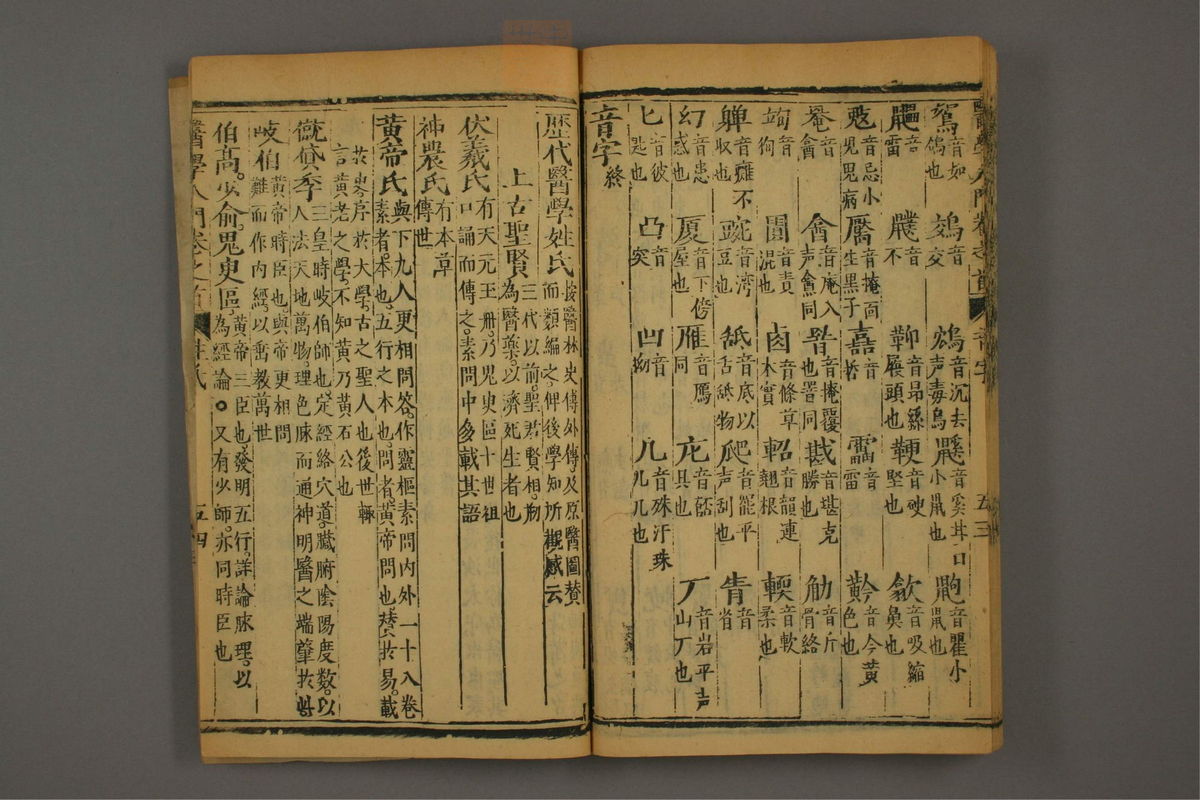 醫學入門卷之首　音字　五三
鴽音如鴿也　䴔音交　鴆音沉去声毒鳥　鼷音奚甘口小鼠也　鼩音瞿小鼠也
音雷　音不　音昂絲履頭也　鞕音硬堅也　歙音吸縮鼻也
鬾音忌小兒鬼病　黶音掩面生黑子　嘉音哲　雷音雷　黅音今黃色也
罨音會　音庵入声禽同　音掩覆也罯同　戡音堪克勝也　觔音斤骨絡
音狗　音責混也　卤音條草木實　軺音韻連翹根　輭音軟柔也
音癱不収也　豌音湾豆也　舐音底以舌舐物　爬音罷平声刮也　眚音省
幻音患惑也　厦音下傍屋也　雁音鴈同　音岩平声山丆也
匕音彼匙也　凸音突　凹音拗　几音殊汙珠几几也
音字終
歷代醫學姓氏按醫林史傳外傳及原醫圖賛而類編之俾後學知所觀感云
上古聖賢三代以前聖君賢相剏為醫藥以濟死生者也
伏羲氏有天元玉冊乃鬼臾區十世祖口誦而傳之素問中多載其語
神農氏有本草傳世
黃帝氏與下九人更相問答作靈樞素問內外一十八卷素者本也五行之本也問者黃帝問也賛於易載
於史序於大學古之聖人也後世輙言黃老之學不知黃乃黃石公也
僦貸季三皇時岐伯師也定經絡穴道臟腑陰陽度数以人法天地萬物理色脉而通神明醫之端肇於此
岐伯黃帝時臣也與帝更相問難而作內經以垂教萬世
伯髙少俞鬼臾區黃帝三臣也發明五行詳論脉理以為經論○又有少師亦同時臣也
醫學入門卷之首　姓氏　五四